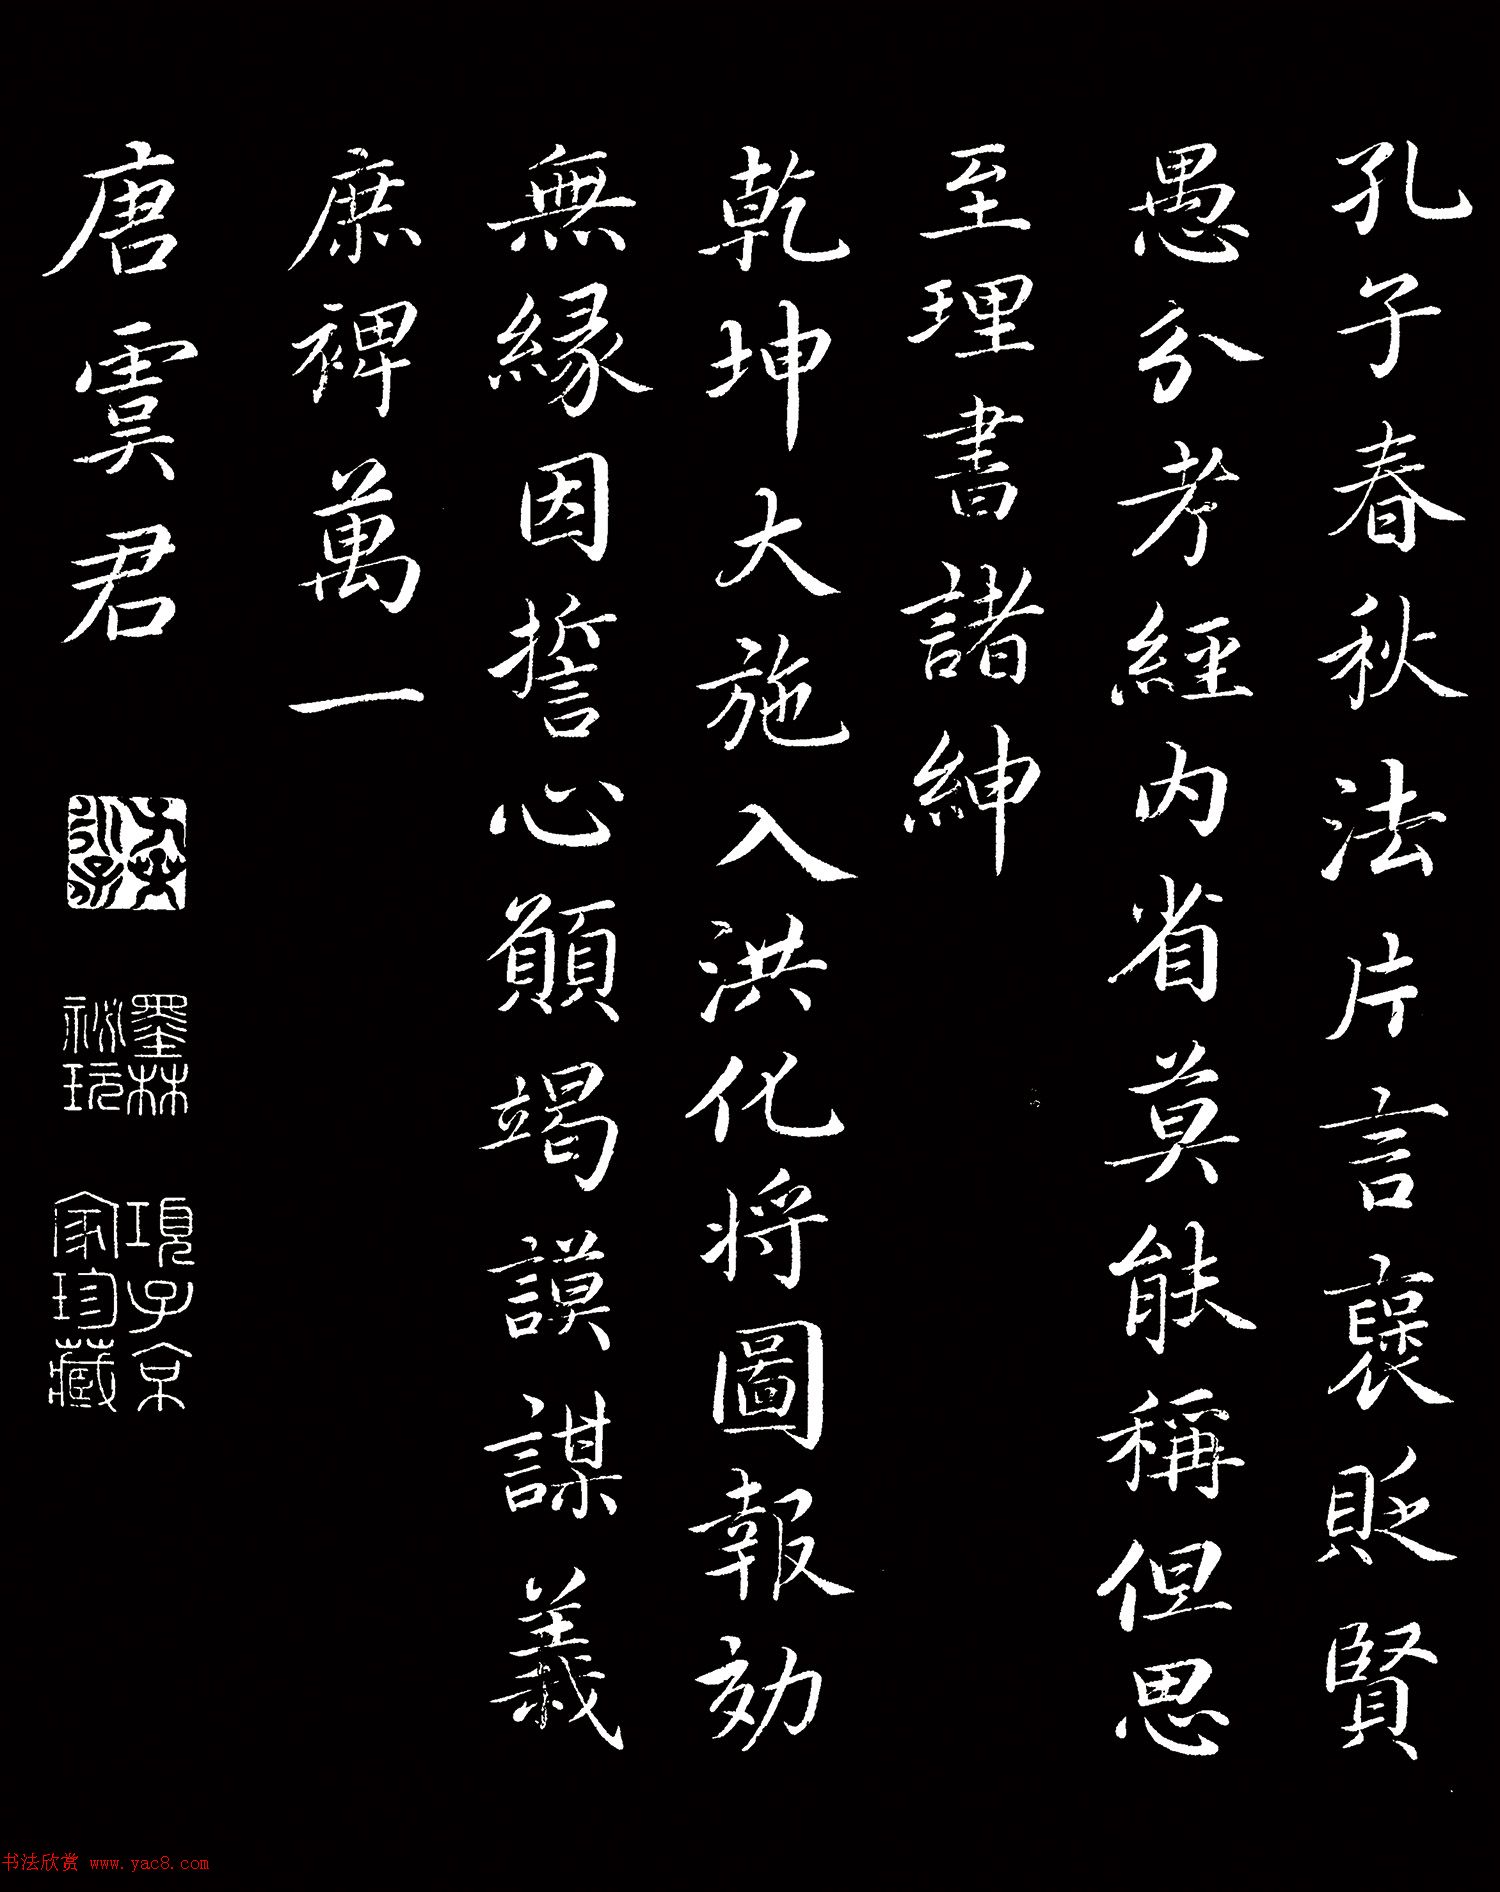 孔子春秋法片言襃貶賢
愚分考經内省莫能稱但思
至理書諸紳
乾坤大施入洪化将圖報効
無緣因誓心願竭謨謀義
庶裨萬一
唐虞君
子孫
永寶
墨林
祕玩
項子京
家珍藏
书法欣赏 www.yac8.com